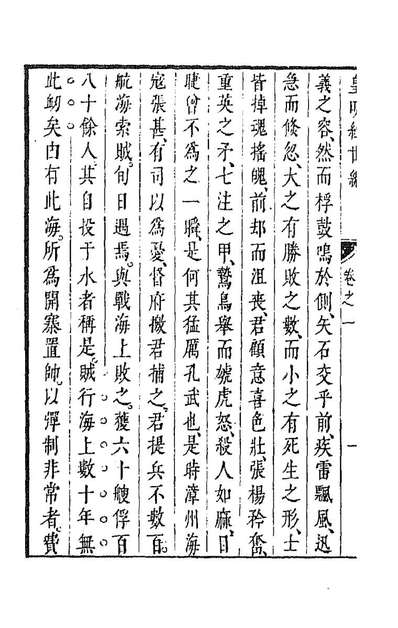 皇明經世編
卷之一
一
義之容、然而桴鼓鳴於側、矢石交乎前、疾雷飄風、迅
急而倏忽、大之有勝敗之數、而小之有死生之形、士
皆掉魂搖魄、前却而沮喪、君顧意喜色壯、張楊矜奮、
重英之矛、七注之甲、鷙鳥舉而虓虎怒、殺人如麻、目
睫曾不為之一瞬、是何其猛厲孔武也、是時漳州海
寇張甚、有司以為憂、督府檄君捕之、君提兵不數百、
航海索賊、旬日遇焉、與戰海上敗之、獲六十艘俘百
八十餘人、其自投于水者稱是、賊行海上數十年無
此衂矣、由有此海、所為開塞置帥、以彈制非常者、費